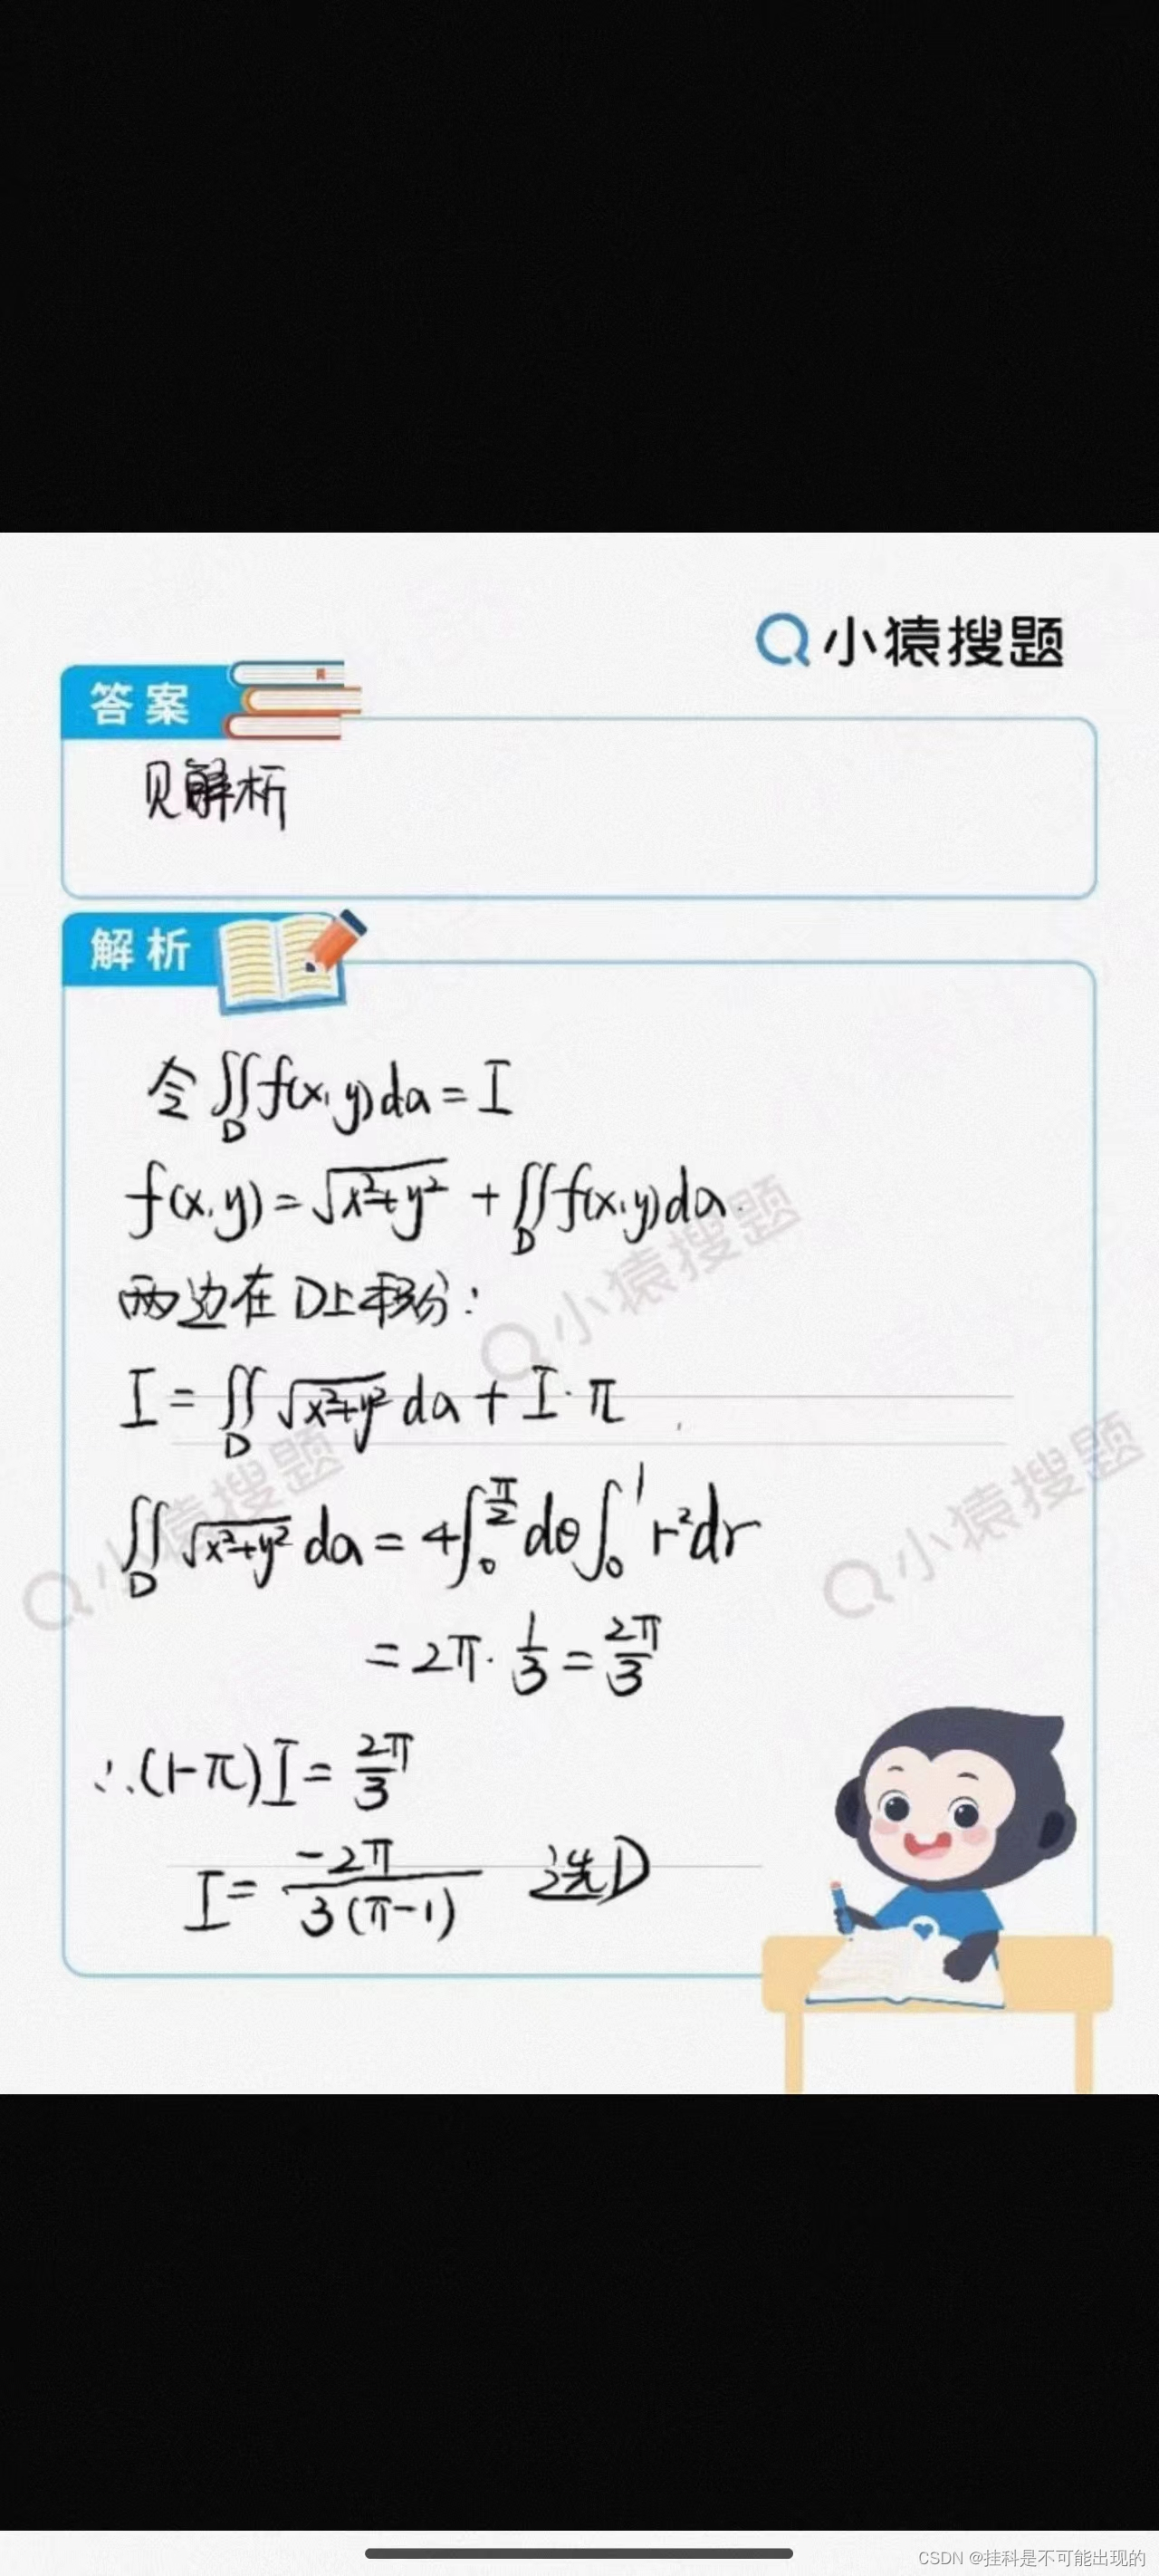 小猿搜题
答案
见解析
解析
令∬_D f(x,y)da=I
f(x,y)=√(x²+y²) + ∬_D f(x,y)da.
两边在D上积分:
I = ∬_D √(x²+y²) da + I·π
∬_D √(x²+y²) da = 4∫₀^(π/2) dθ ∫₀^1 r²dr
= 2π·1/3 = 2π/3
∴(1-π)I = 2π/3
I = -2π/3(π-1) 选D
小猿搜题
小猿搜题
小猿搜题
CSDN @挂科是不可能出现的